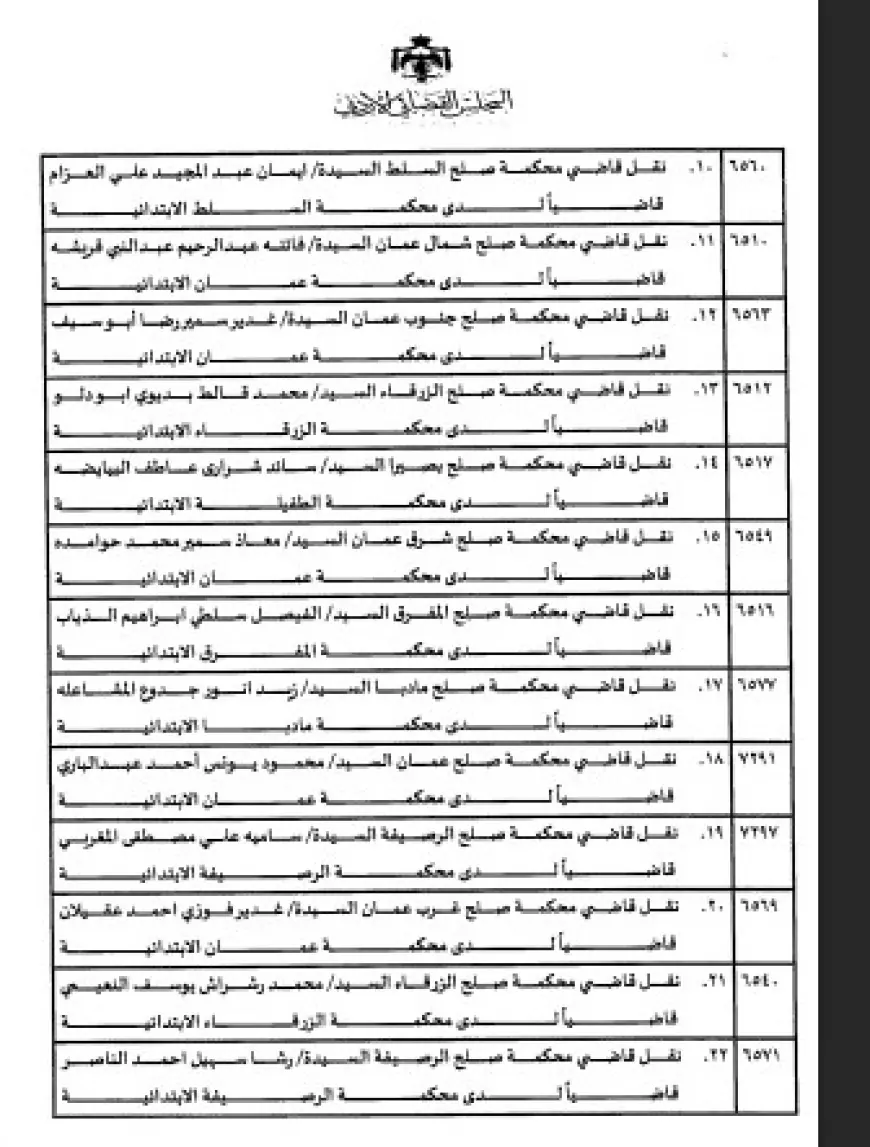 المجلس القضائي الأردني
٦٥٦٠ ١٠. نقل قاضي محكمة صلح السلط السيدة/ ايمان عبد المجيد علي العزام
قاضياً لدى محكمة السلط الابتدائية
٦٥١٠ ١١. نقل قاضي محكمة صلح شمال عمان السيدة/ فاتنه عبدالرحيم عبدالنبي قريشه
قاضياً لدى محكمة عمان الابتدائية
٦٥٦٣ ١٢. نقل قاضي محكمة صلح جنوب عمان السيدة/ غدير سمير رضا أبو سيف
قاضياً لدى محكمة عمان الابتدائية
٦٥١٢ ١٣. نقل قاضي محكمة صلح الزرقاء السيد/ محمد قالط بديوي ابو دلو
قاضياً لدى محكمة الزرقاء الابتدائية
٦٥١٧ ١٤. نقل قاضي محكمة صلح بصيرا السيد/ سائد شراري عاطف البيايضه
قاضياً لدى محكمة الطفيلة الابتدائية
٦٥٤٩ ١٥. نقل قاضي محكمة صلح شرق عمان السيد/ معاذ سمير محمد حوامده
قاضياً لدى محكمة عمان الابتدائية
٦٥١٦ ١٦. نقل قاضي محكمة صلح المفرق السيد/ الفيصل سلطي ابراهيم الذياب
قاضياً لدى محكمة المفرق الابتدائية
٦٥٧٧ ١٧. نقل قاضي محكمة صلح مادبا السيد/ زيد انور جدوع المشاعله
قاضياً لدى محكمة مادبا الابتدائية
٧٢٩١ ١٨. نقل قاضي محكمة صلح عمان السيد/ محمود يونس أحمد عبدالباري
قاضياً لدى محكمة عمان الابتدائية
٧٢٩٧ ١٩. نقل قاضي محكمة صلح الرصيفة السيدة/ ساميه علي مصطفى المغربي
قاضياً لدى محكمة الرصيفة الابتدائية
٦٥٦٩ ٢٠. نقل قاضي محكمة صلح غرب عمان السيدة/ غدير فوزي احمد عقيلان
قاضياً لدى محكمة عمان الابتدائية
٦٥٤٠ ٢١. نقل قاضي محكمة صلح الزرقاء السيد/ محمد رشراش يوسف النعيمي
قاضياً لدى محكمة الزرقاء الابتدائية
٦٥٧١ ٢٢. نقل قاضي محكمة صلح الرصيفة السيدة/ رشا سهيل احمد الناصر
قاضياً لدى محكمة الرصيفة الابتدائية